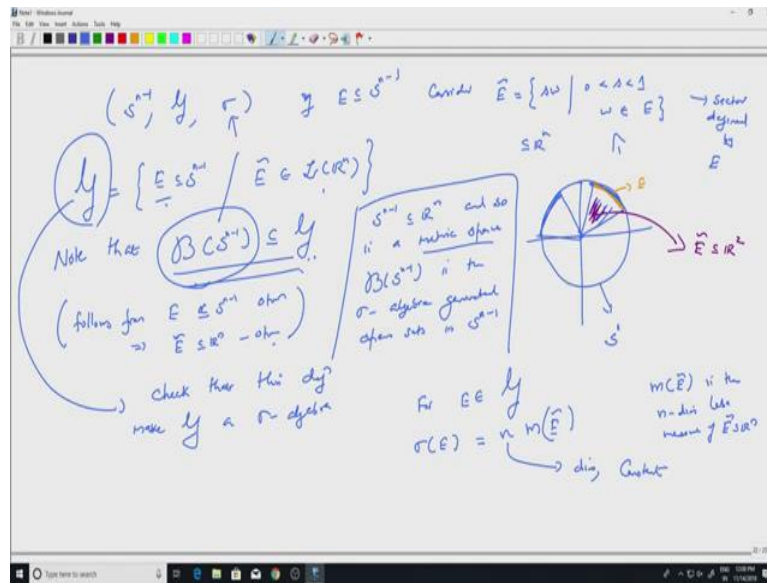 Note1 - Windows Journal
File Edit View Insert Actions Tools Help
(S^{n-1}, 𝒴, σ) if E ⊆ S^{n-1} Consider Ẽ = {sw | 0 < s < 1
w ∈ E} → Sector
defined
by
E
⊆ ℝ^n
𝒴 = {E ⊆ S^{n-1} / Ẽ ∈ ℒ(ℝ^n)}
Note that B(S^{n-1}) ⊆ 𝒴
(follows from E ⊆ S^{n-1} open
⇒ Ẽ ⊆ ℝ^n - open)
check that this defn
makes 𝒴 a σ-algebra
S^{n-1} ⊆ ℝ^n and so
is a metric space
B(S^{n-1}) is the
σ-algebra generated
open sets in S^{n-1}
E
Ẽ ⊆ ℝ^2
S^1
For E ∈ 𝒴
σ(E) = n m(Ẽ)
→ dim, Constant
m(Ẽ) is the
n-dim Leb
measure of Ẽ ⊆ ℝ^n
Type here to search